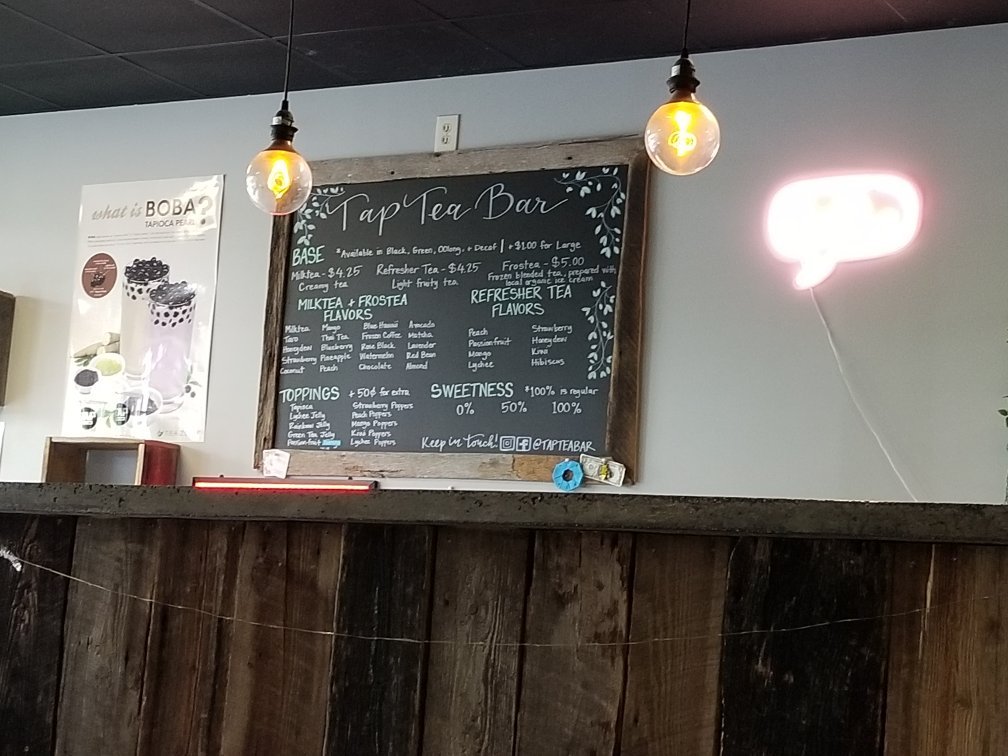 what is BOBA?
TAPIOCA PEARL
Tap Tea Bar
BASE *Available in Black, Green, OOlong, + Decaf | +$1.00 for Large
Milktea - $4.25 Refresher Tea - $4.25 Frostea - $5.00
Creamy tea Light fruity tea. Frozen blended tea, prepared with
local organic ice cream
MILKTEA + FROSTEA
FLAVORS
Milktea Mango Blue Hawaii Avocado
Taro Thai Tea Frozen Coffee Matcha
Honeydew Blueberry Rose Black Lavender
Strawberry Pineapple Watermelon Red Bean
Coconut Peach Chocolate Almond
REFRESHER TEA
FLAVORS
Peach Strawberry
Passionfruit Honeydew
Mango Kiwi
Lychee Hibiscus
TOPPINGS + 50¢ for extra
Tapioca Strawberry Poppers
Lychee Jelly Peach Poppers
Rainbow Jelly Mango Poppers
Green Tea Jelly Kiwi Poppers
Passionfruit Lychee Poppers
SWEETNESS *100% is regular
0% 50% 100%
Keep in touch! @TAPTEABAR